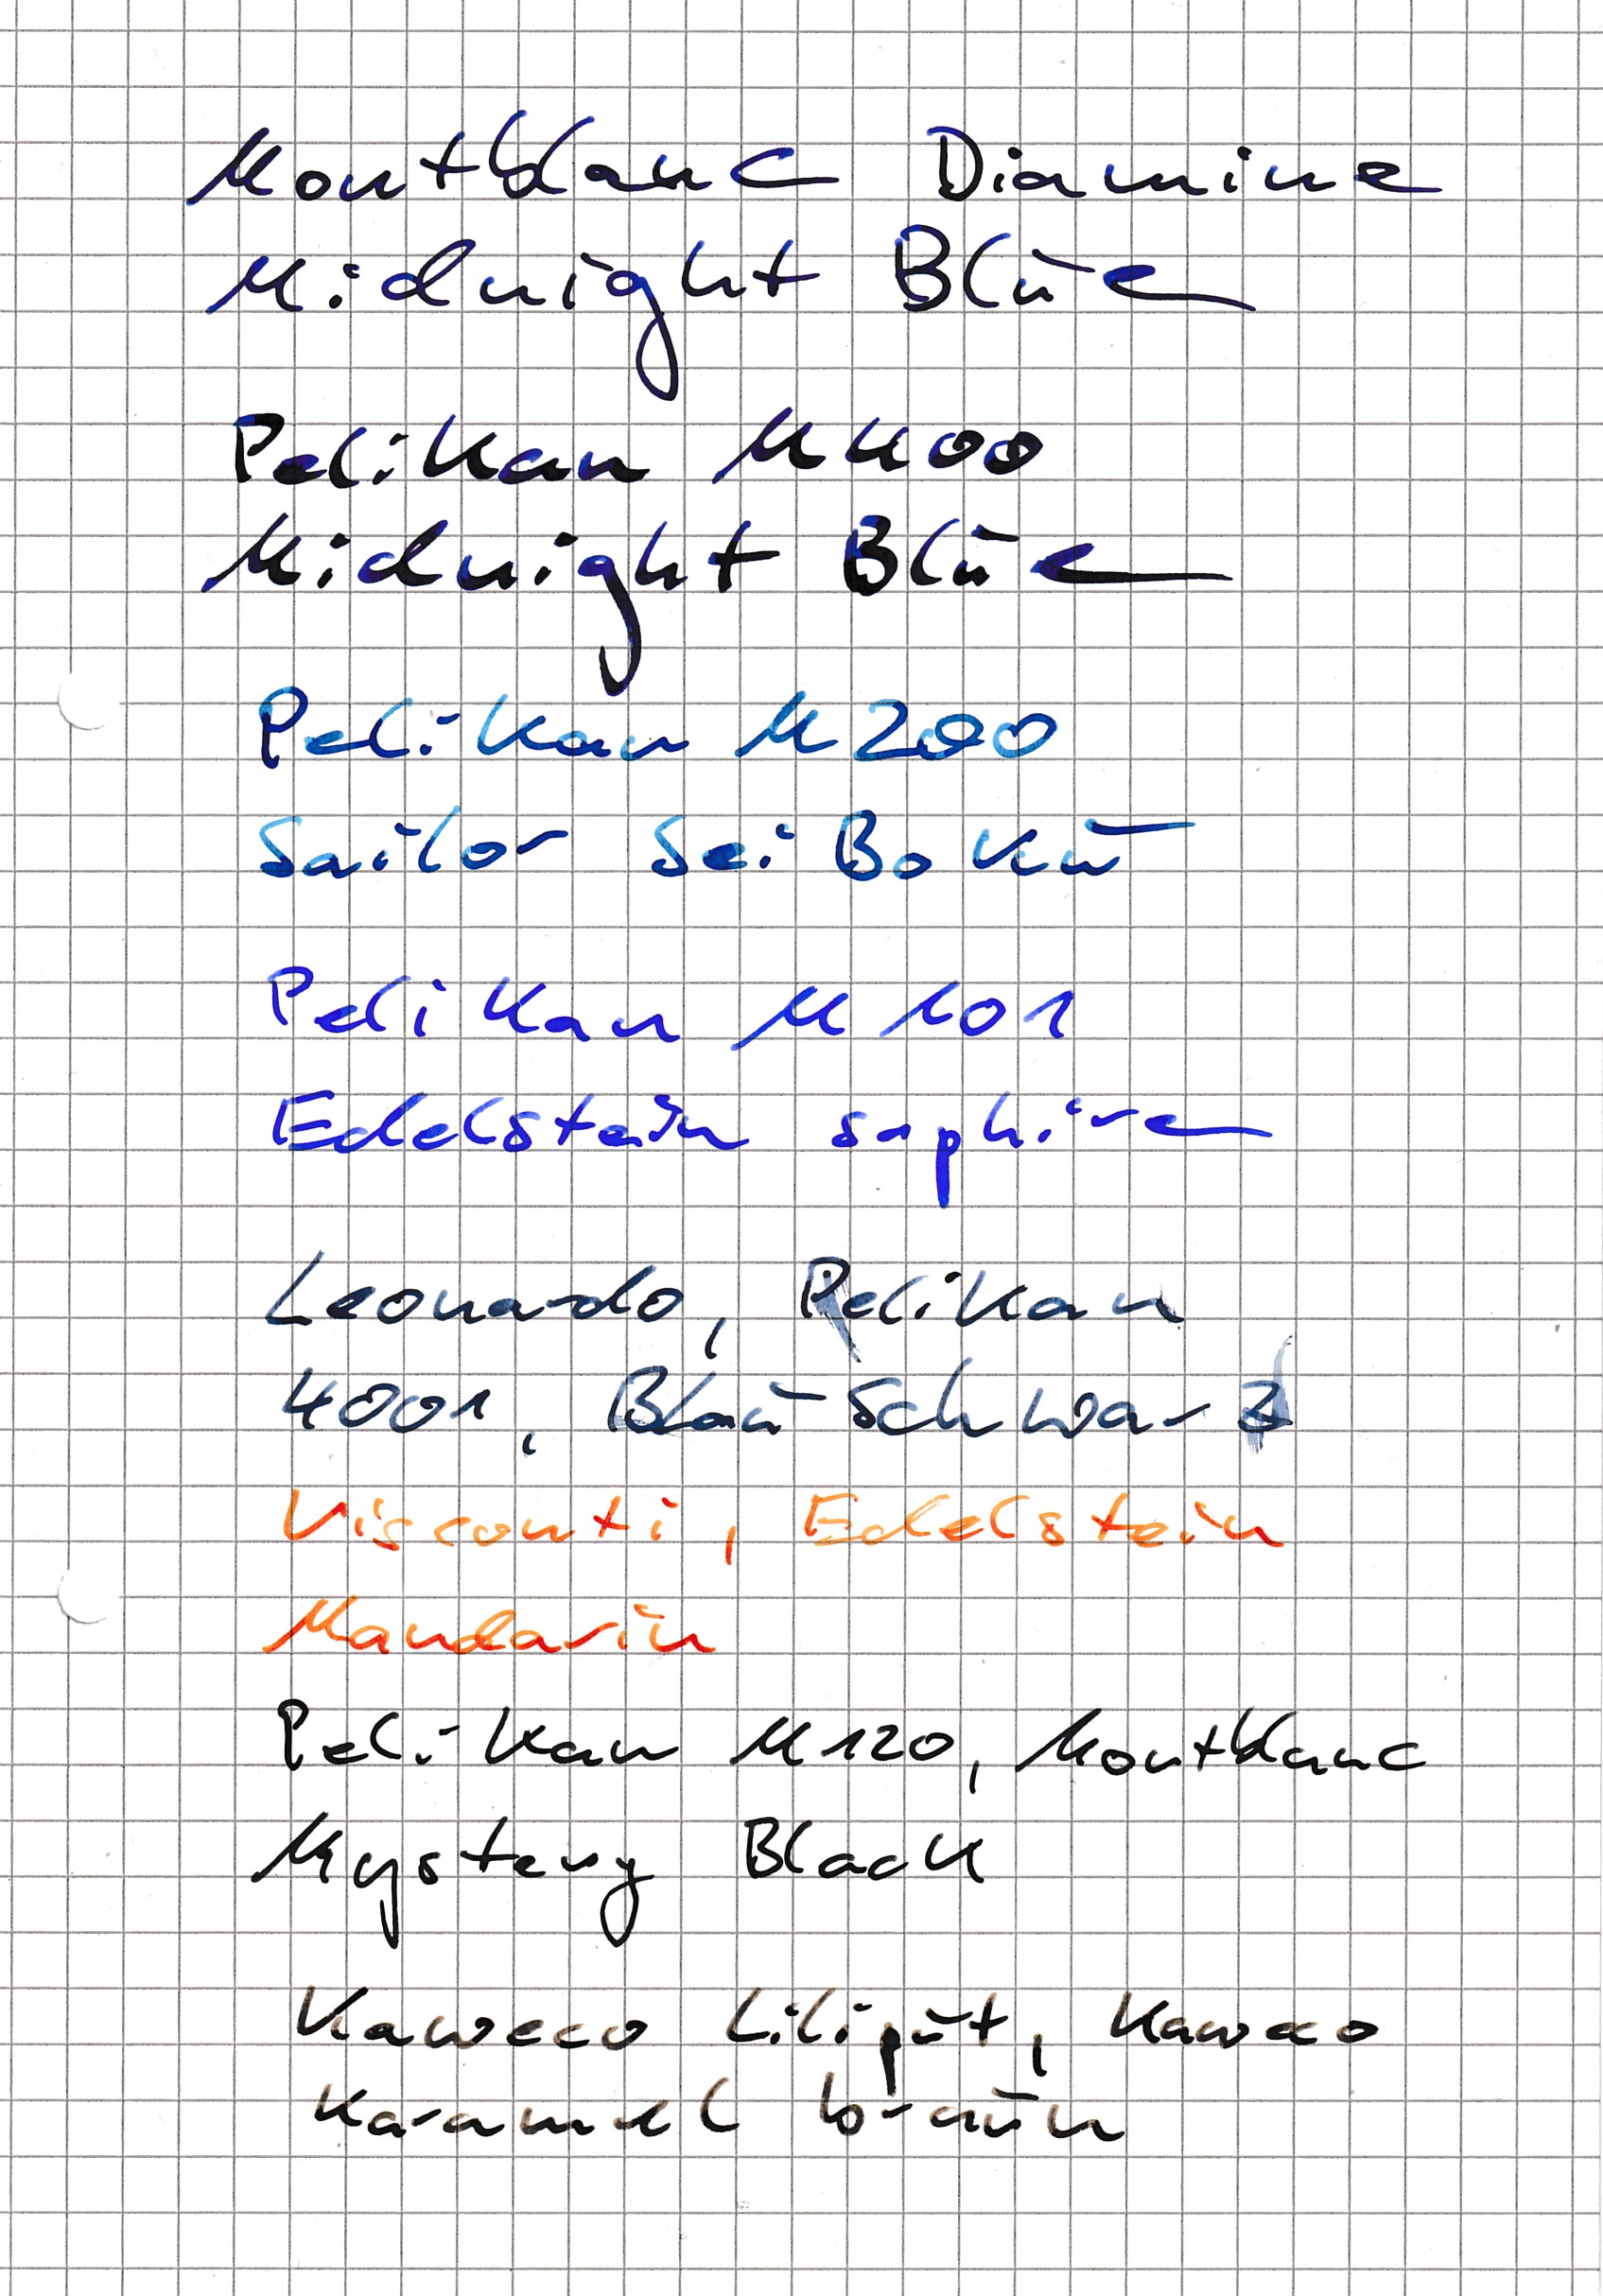 Montblanc Diamine
Midnight Blue
Pelikan M400
Midnight Blue
Pelikan M200
Sailor Sei Boku
Pelikan M101
Edelstein saphire
Leonardo, Pelikan
4001, Blau Schwarz
Visconti, Edelstein
Mandarin
Pelikan M120, Montblanc
Mystery Black
Kaweco Liliput, Kaweco
Karamel braun